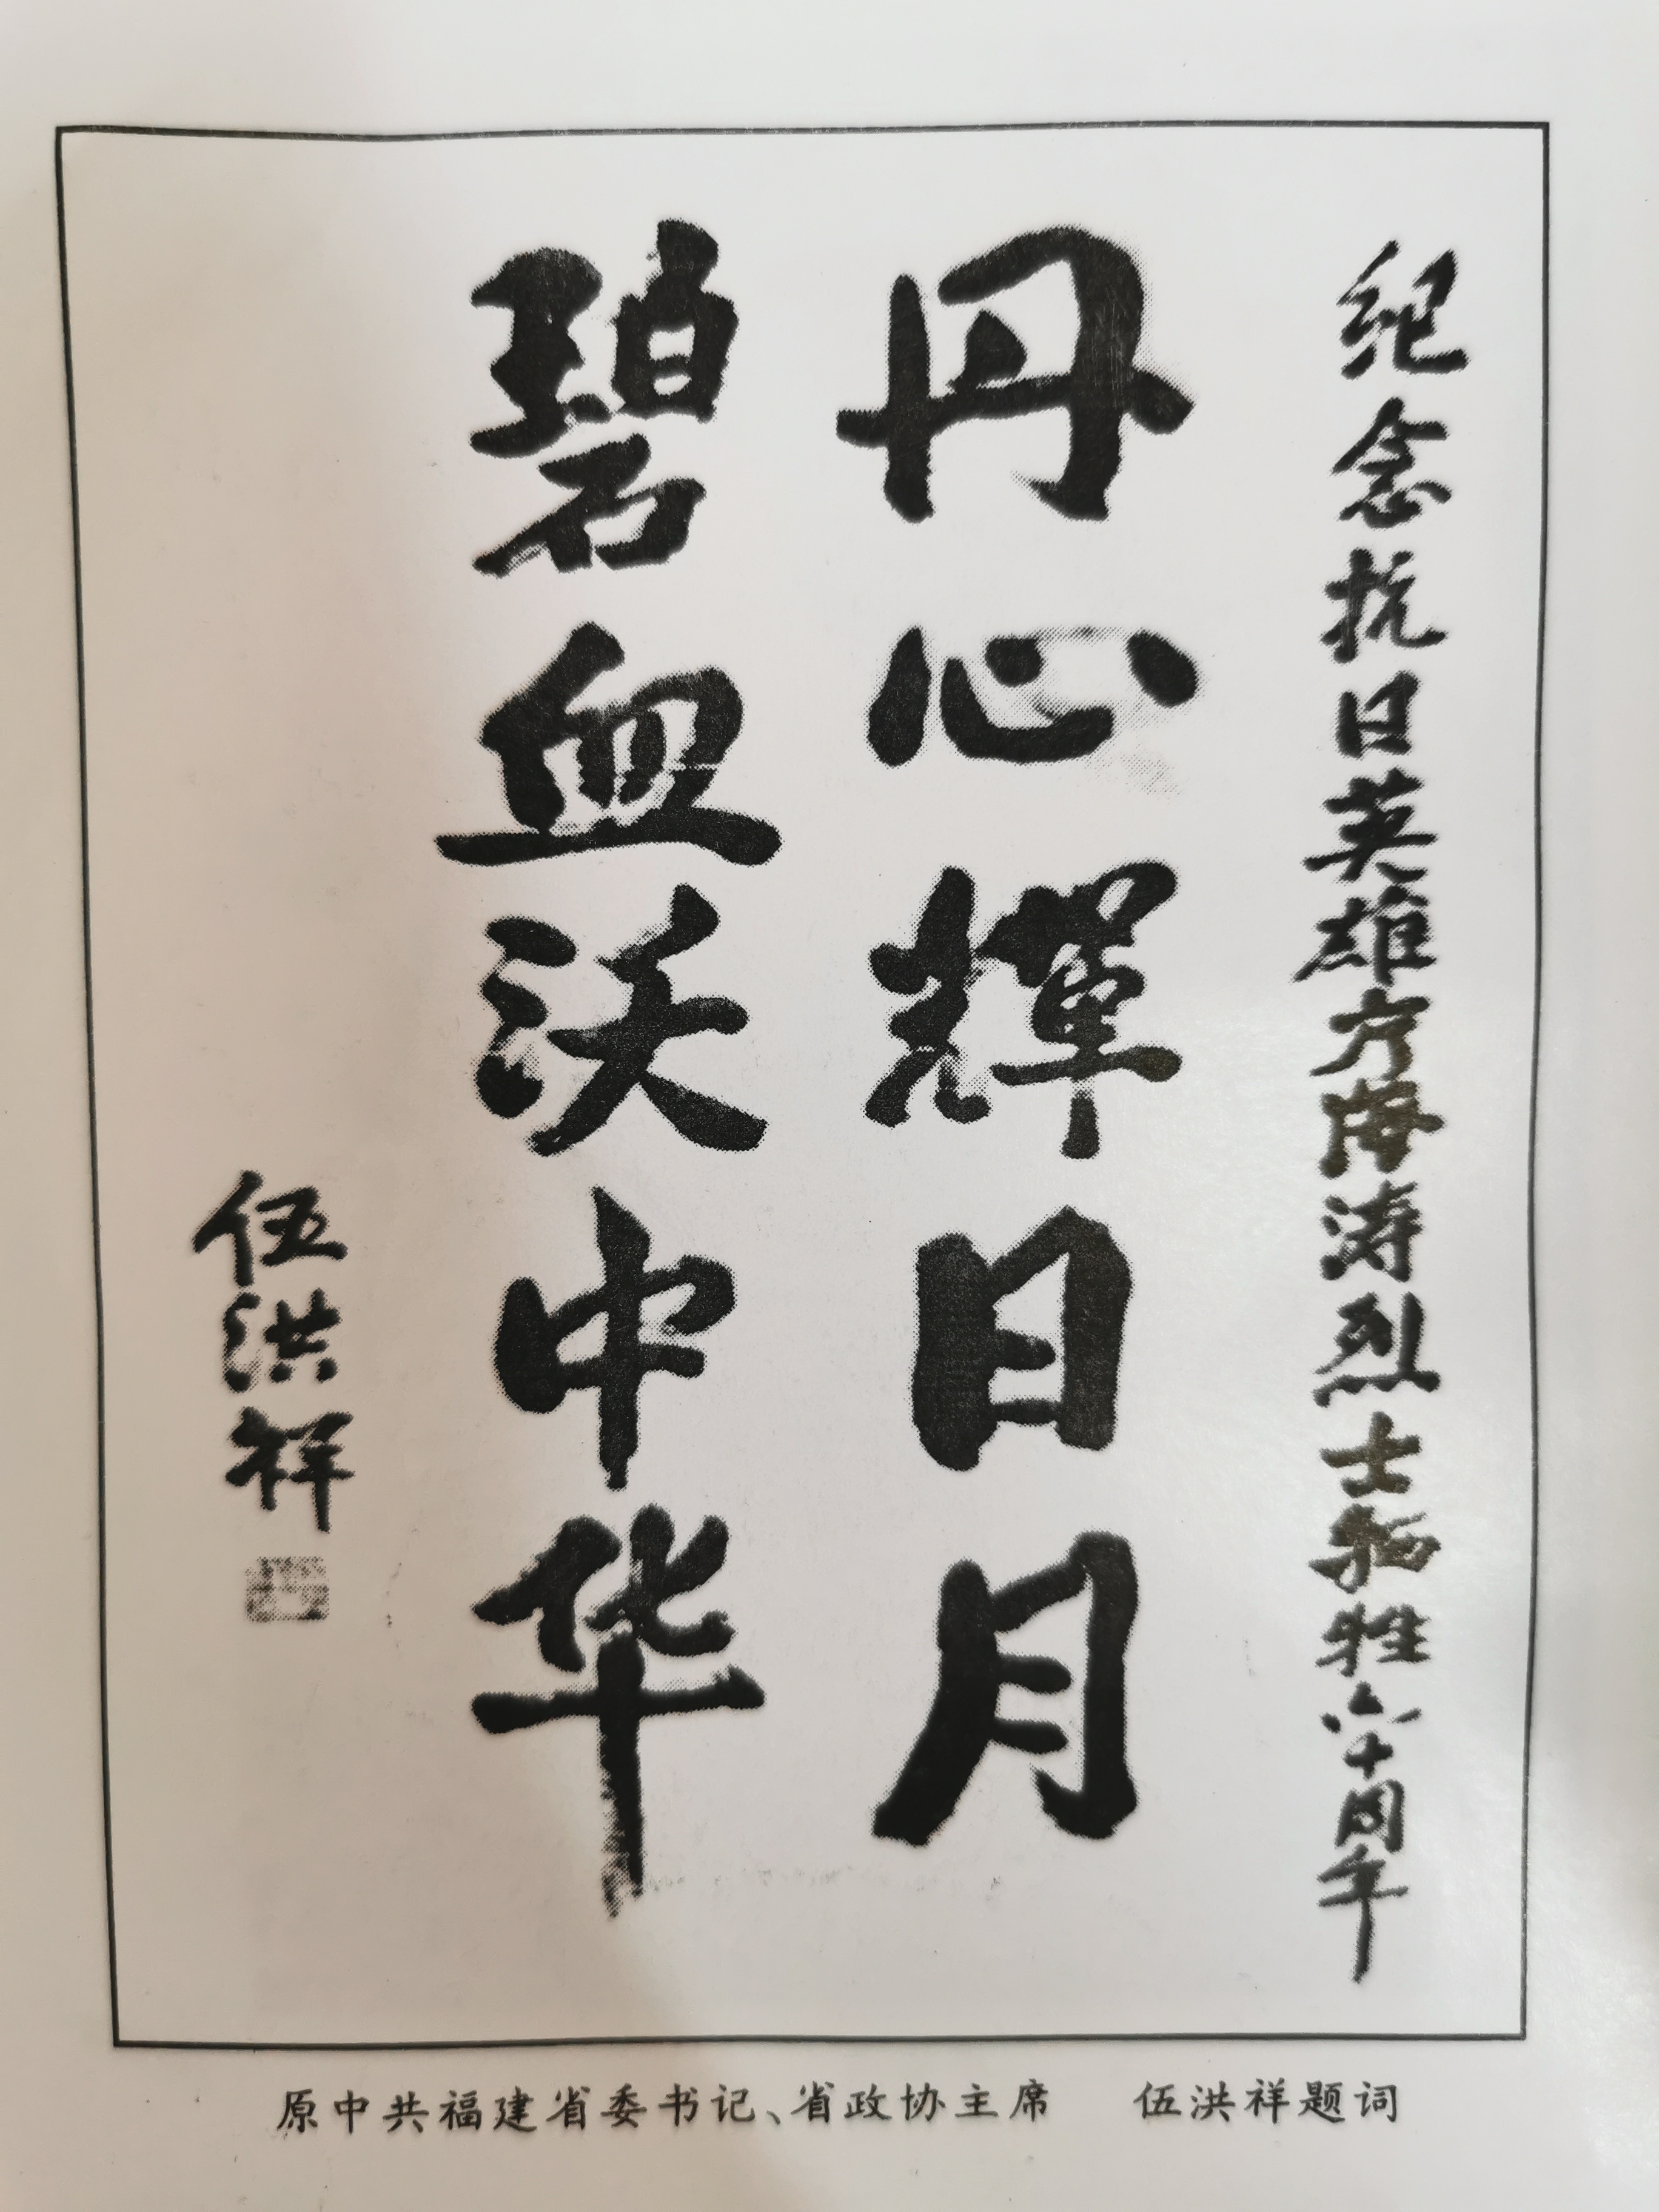 纪念抗日英雄方海涛烈士牺牲六十周年
丹心輝日月
碧血沃中华
伍洪祥
原中共福建省委书记、省政协主席 伍洪祥题词